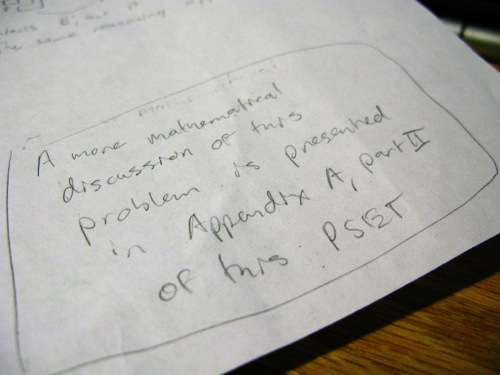 the same reasoning
A more mathematical
discussion of this
problem is presented
in Appendix A, part II
of this PSET